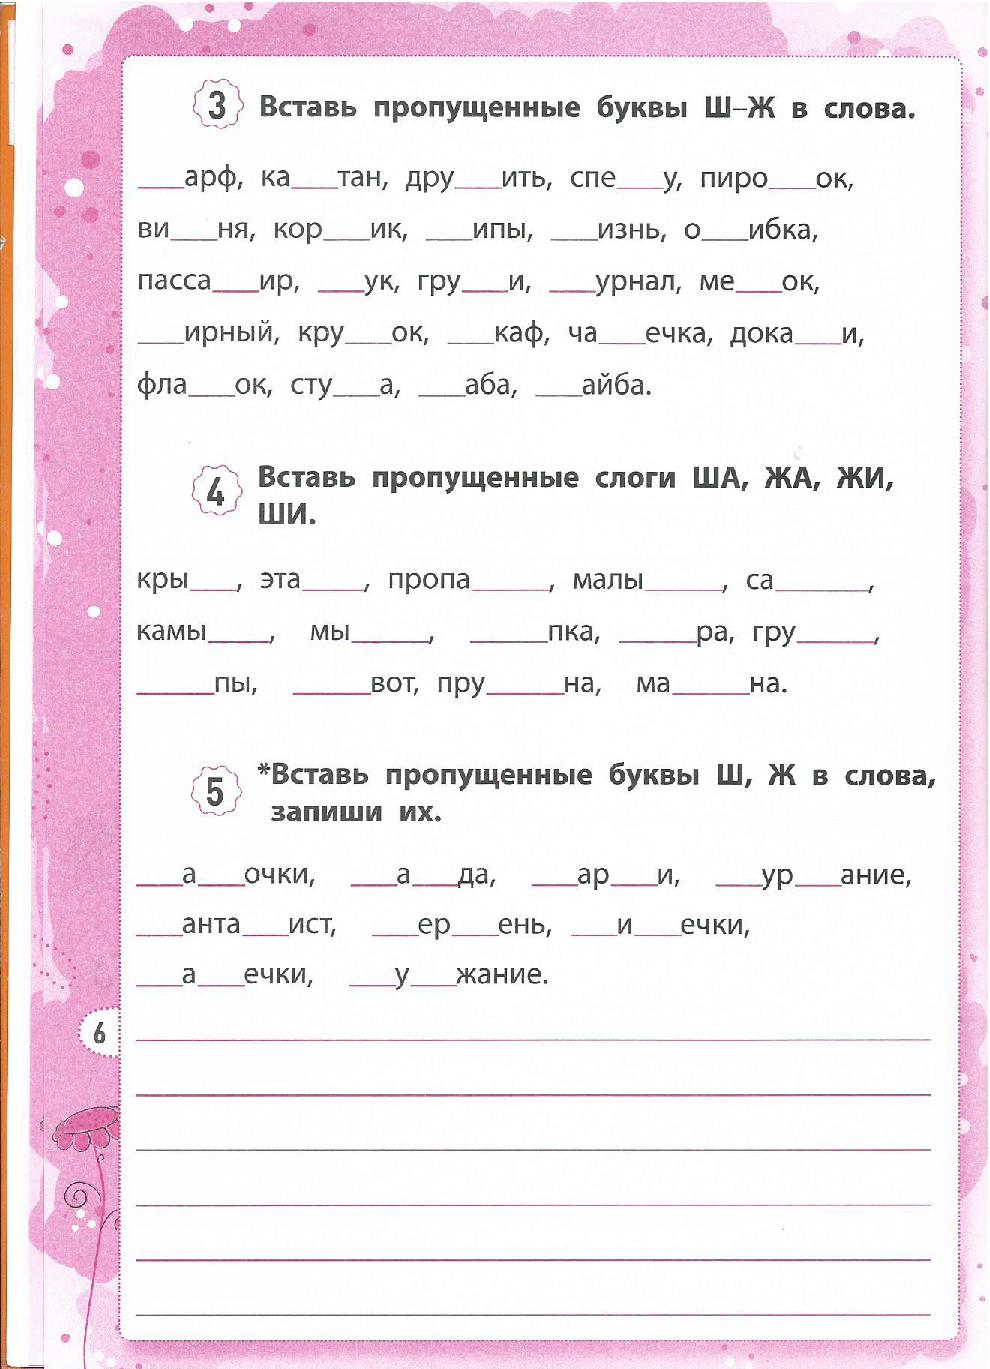 3 Вставь пропущенные буквы Ш–Ж в слова.
___арф, ка___тан, дру___ить, спе___у, пиро___ок,
ви___ня, кор___ик, ___ипы, ___изнь, о___ибка,
пасса___ир, ___ук, гру___и, ___урнал, ме___ок,
___ирный, кру___ок, ___каф, ча___ечка, дока___и,
фла___ок, сту___а, ___аба, ___айба.
4 Вставь пропущенные слоги ША, ЖА, ЖИ,
ШИ.
кры___, эта____, пропа_____, малы_____, са______,
камы____, мы_____, _____пка, _____ра, гру_____,
_____пы, _____вот, пру_____на, ма_____на.
5 *Вставь пропущенные буквы Ш, Ж в слова,
запиши их.
___а___очки, ___а___да, ___ар___и, ___ур___ание,
___анта___ист, ___ер___ень, ___и___ечки,
___а___ечки, ___у___жание.
6